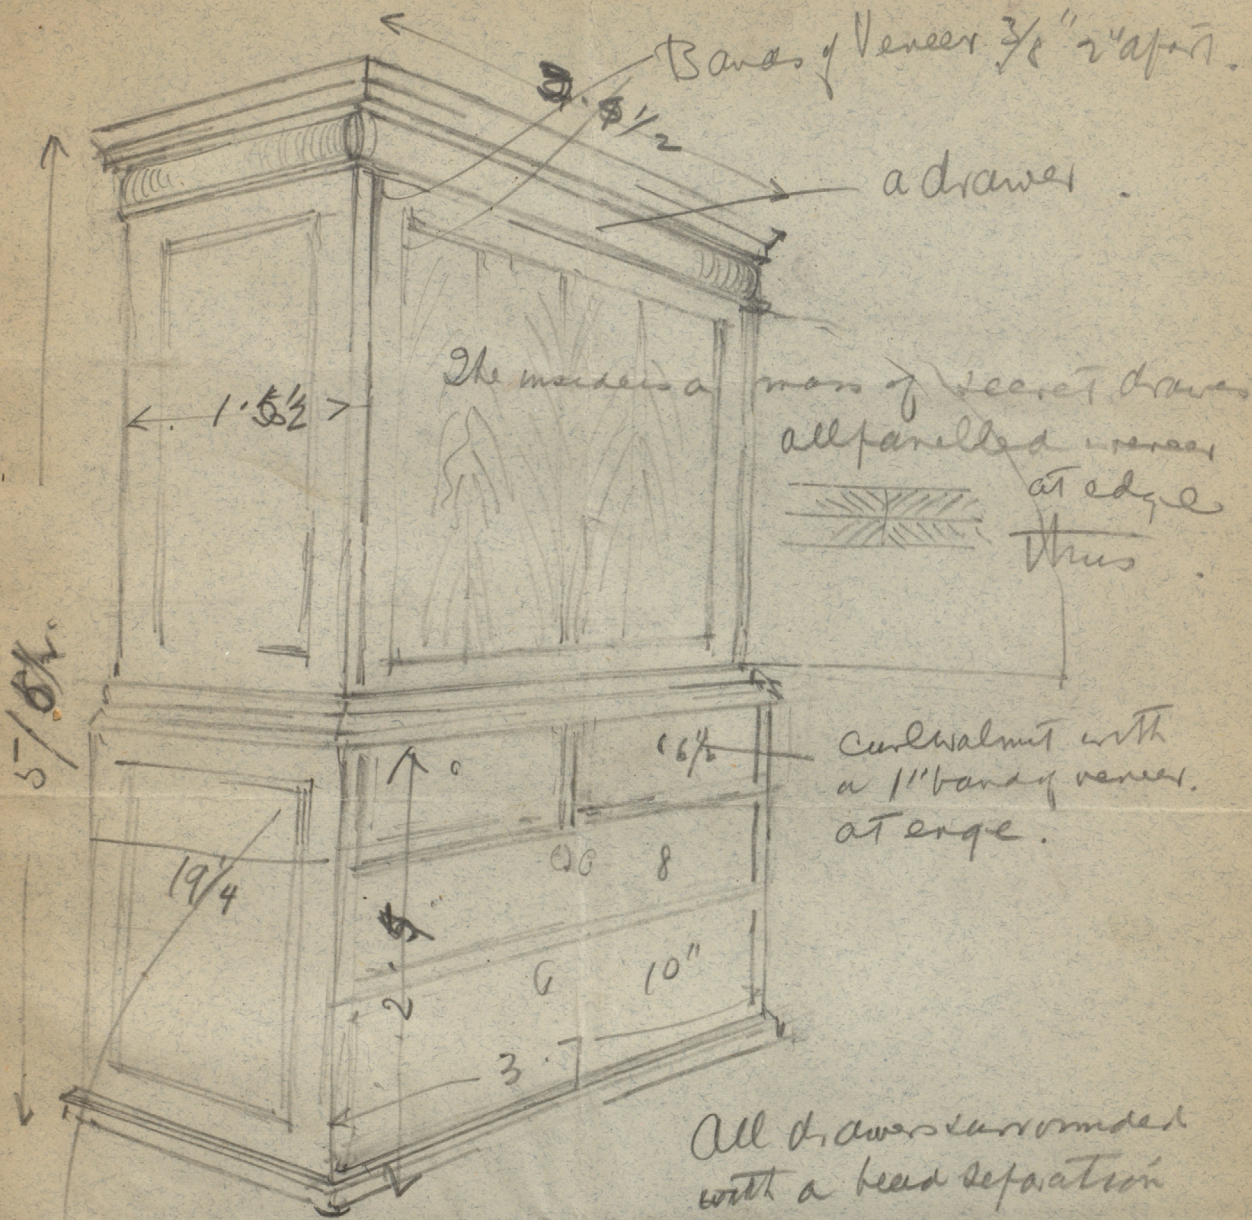 Bands of Veneer 3/8" 2" apart.
a drawer .
1·5½
The inside is a mass of secret drawers
all panelled veneer
at edge
thus .
5/
6½
curl walnut with
a 1" band of veneer.
at enge .
8
19¼
2·
10"
3 ·
All drawers surrounded
with a bead separation